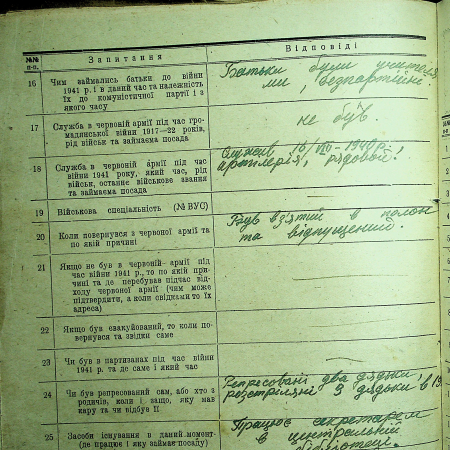 №№ п-п.
Запитання
Відповіді
16
Чим займались батьки до війни
1941 р. і в даний час та належність
їх до комуністичної партії і з
якого часу
Батьки були учителя
ми, безпартійні
17
Служба в червоній армії під час гро-
мадянської війни 1917—22 років,
рід військ та займаєма посада
не був
18
Служба в червоній армії під час
війни 1941 року, який час, рід
військ, останнє військове звання
та займаєма посада
Служив
артилерія, рядовой.
19
Військова спеціальність (№ ВУС)
20
Коли повернувся з червоної армії та
по якій причині
Був взятий в полон
та відпущений.
21
Якщо не був в червоній армії під
час війни 1941 р., то по якій при-
чині та де перебував підчас від-
ходу червоної армії (чим може
підтвердити, а коли свідками то їх
адреса)
22
Якщо був евакуйований, то коли по-
вернувся та звідки саме
23
Чи був в партизанах під час війни
1941 р. та де саме і який час
24
Чи був репресований сам, або хто з
родичів, коли і защо, яку мав
кару та чи відбув її
Репресовані два дядьки
розстріляні 3 дядьки в 19
25
Засоби існування в даний момент
(де працює і яку займає посаду)
Працює секретарем
в центральній
бібліотеці.